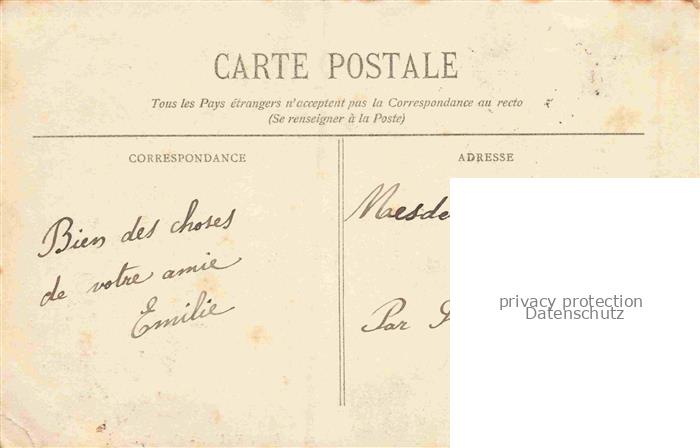 CARTE POSTALE
Tous les Pays étrangers n'acceptent pas la Correspondance au recto
(Se renseigner à la Poste)
CORRESPONDANCE
Bien des choses
de votre amie
Emilie
ADRESSE
Mesde
Par
privacy protection
Datenschutz